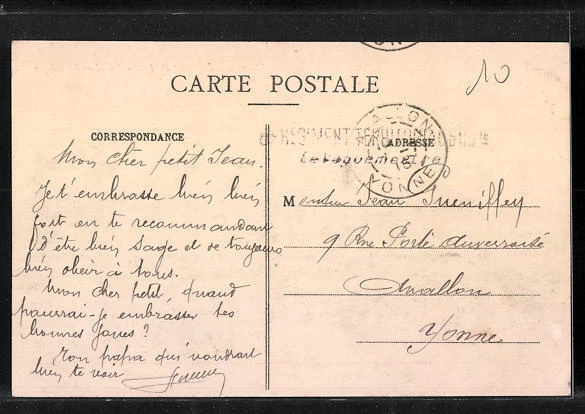 10
CARTE POSTALE
CORRESPONDANCE
ADRESSE
REGIMENT TERRITORIAL
Le Vaguemestre
AVALLON
YONNE
Mon cher petit Jean.
Je t'embrasse bien bien
fort en te recommandant
d'être bien sage et de toujours
bien obéir à tous.
Mon cher petit, quand
pourrai-je embrasser tes
bonnes joues ?
Ton papa qui voudrait
bien te voir
Monsieur Jean Gueniffey
9 Rue Porte Auxerroise
Avallon
Yonne.